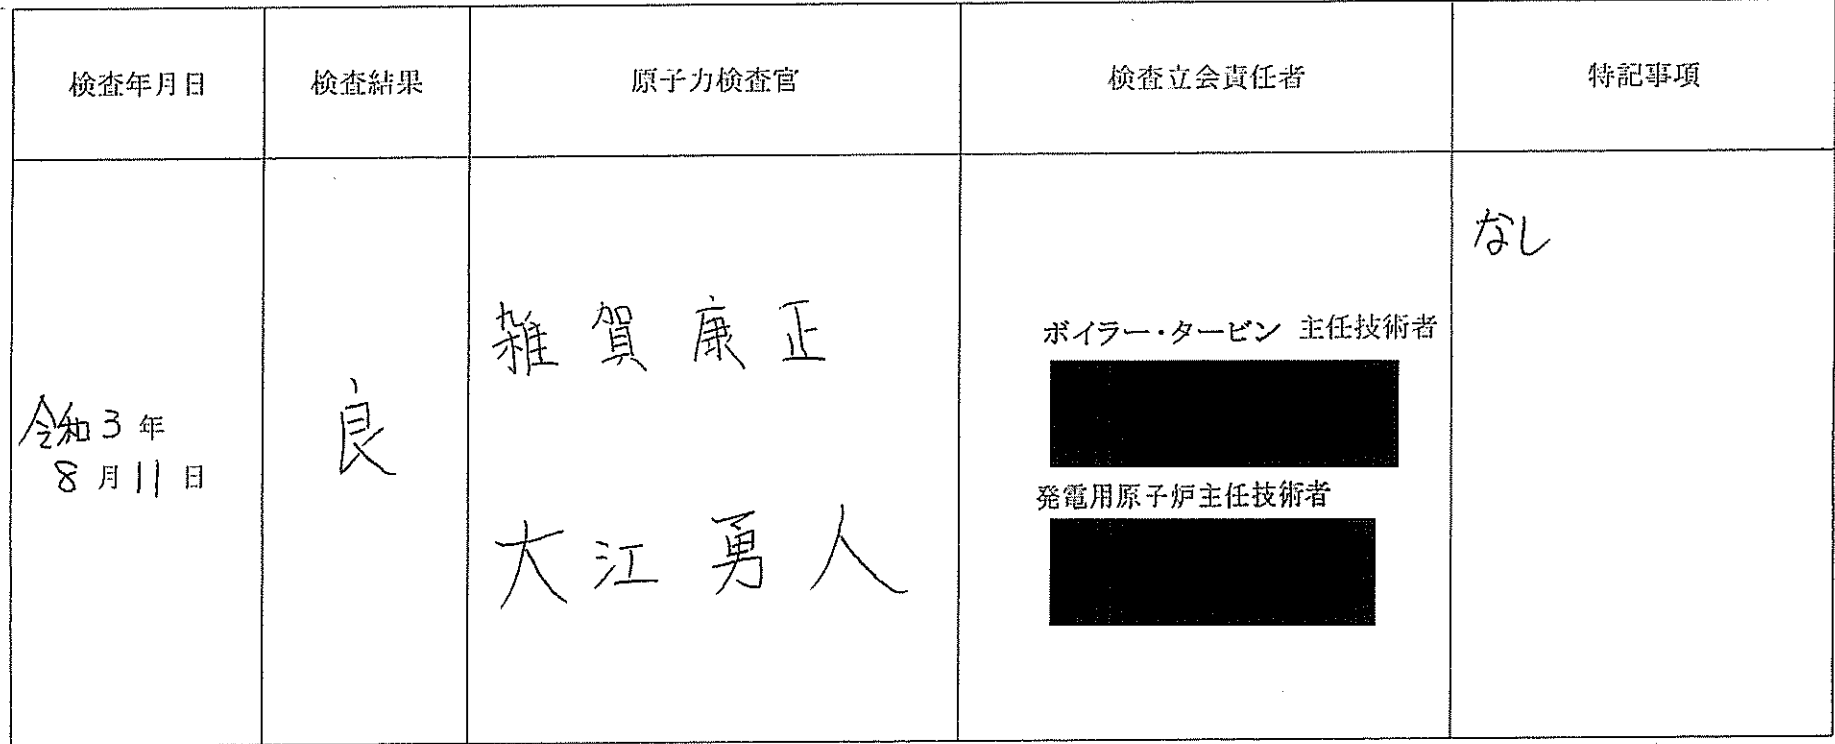 検査年月日
検査結果
原子力検査官
検査立会責任者
特記事項
令和3年
8月11日
良
雑賀康正
大江勇人
ボイラー・タービン 主任技術者
発電用原子炉主任技術者
なし